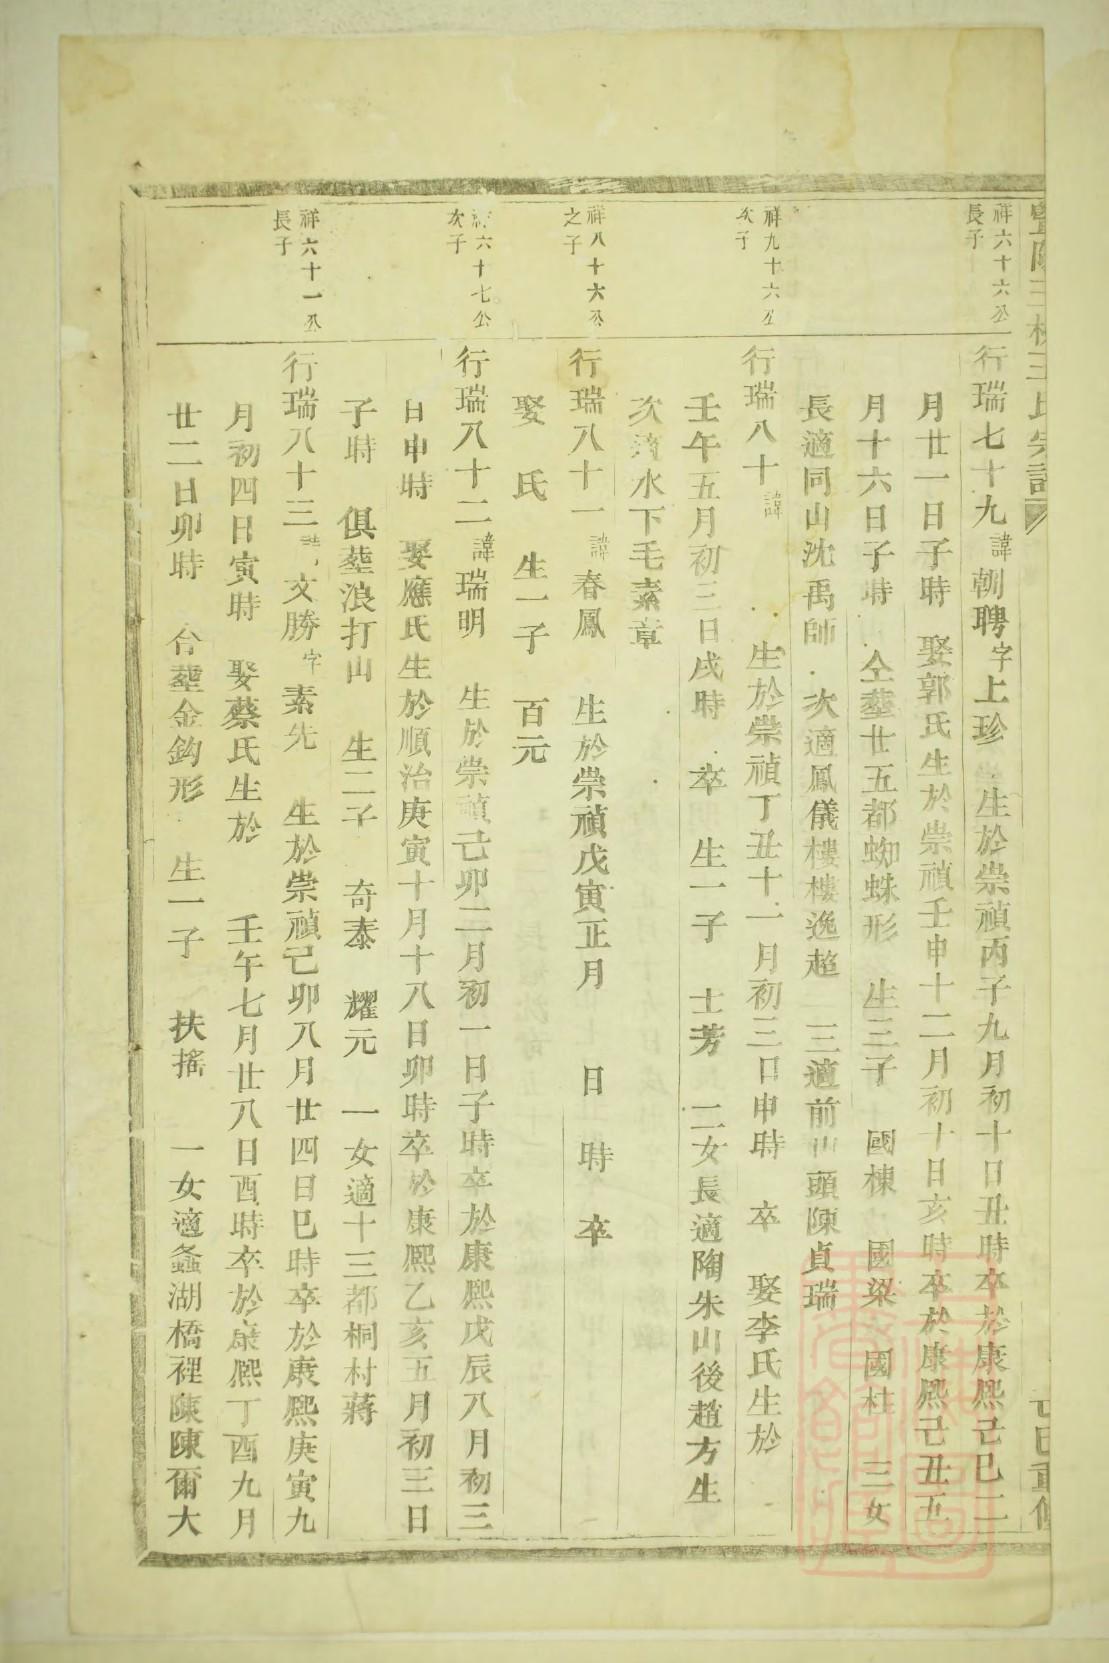 祥六十六公
長子
行瑞七十九諱朝聘字上珍 生於崇禎丙子九月初十日丑時卒於康熙己巳二
月廿一日子時 娶郭氏生於崇禎壬申十二月初十日亥時卒於康熙己丑五
月十六日子時 仝塟廿五都蜘蛛形 生三子 國棟 國梁 國柱 三女
長適同山沈禹師 次適鳳儀樓樓逸超 三適前山頭陳貞瑞
祥九十六公
次子
行瑞八十諱 生於崇禎丁丑十一月初三日申時 卒 娶李氏生於
壬午五月初三日戌時 卒 生一子 士芳 二女長適陶朱山後趙方生
次適水下毛素章
祥八十六公
之子
行瑞八十一諱春鳳 生於崇禎戊寅正月 日 時 卒
娶 氏 生一子 百元
六十七公
次子
行瑞八十二諱瑞明 生於崇禎己卯二月初一日子時卒於康熙戊辰八月初三
日申時 娶應氏生於順治庚寅十月十八日卯時卒於康熙乙亥五月初三日
子時 俱塟浪打山 生二子 奇泰 耀元 一女適十三都桐村蔣
祥六十一公
長子
行瑞八十三 文勝字素先 生於崇禎己卯八月廿四日巳時卒於康熙庚寅九
月初四日寅時 娶蔡氏生於 壬午七月廿八日酉時卒於康熙丁酉九月
廿二日卯時 合塟金鈎形 生一子 扶搖 一女適蠡湖橋裡陳陳爾大